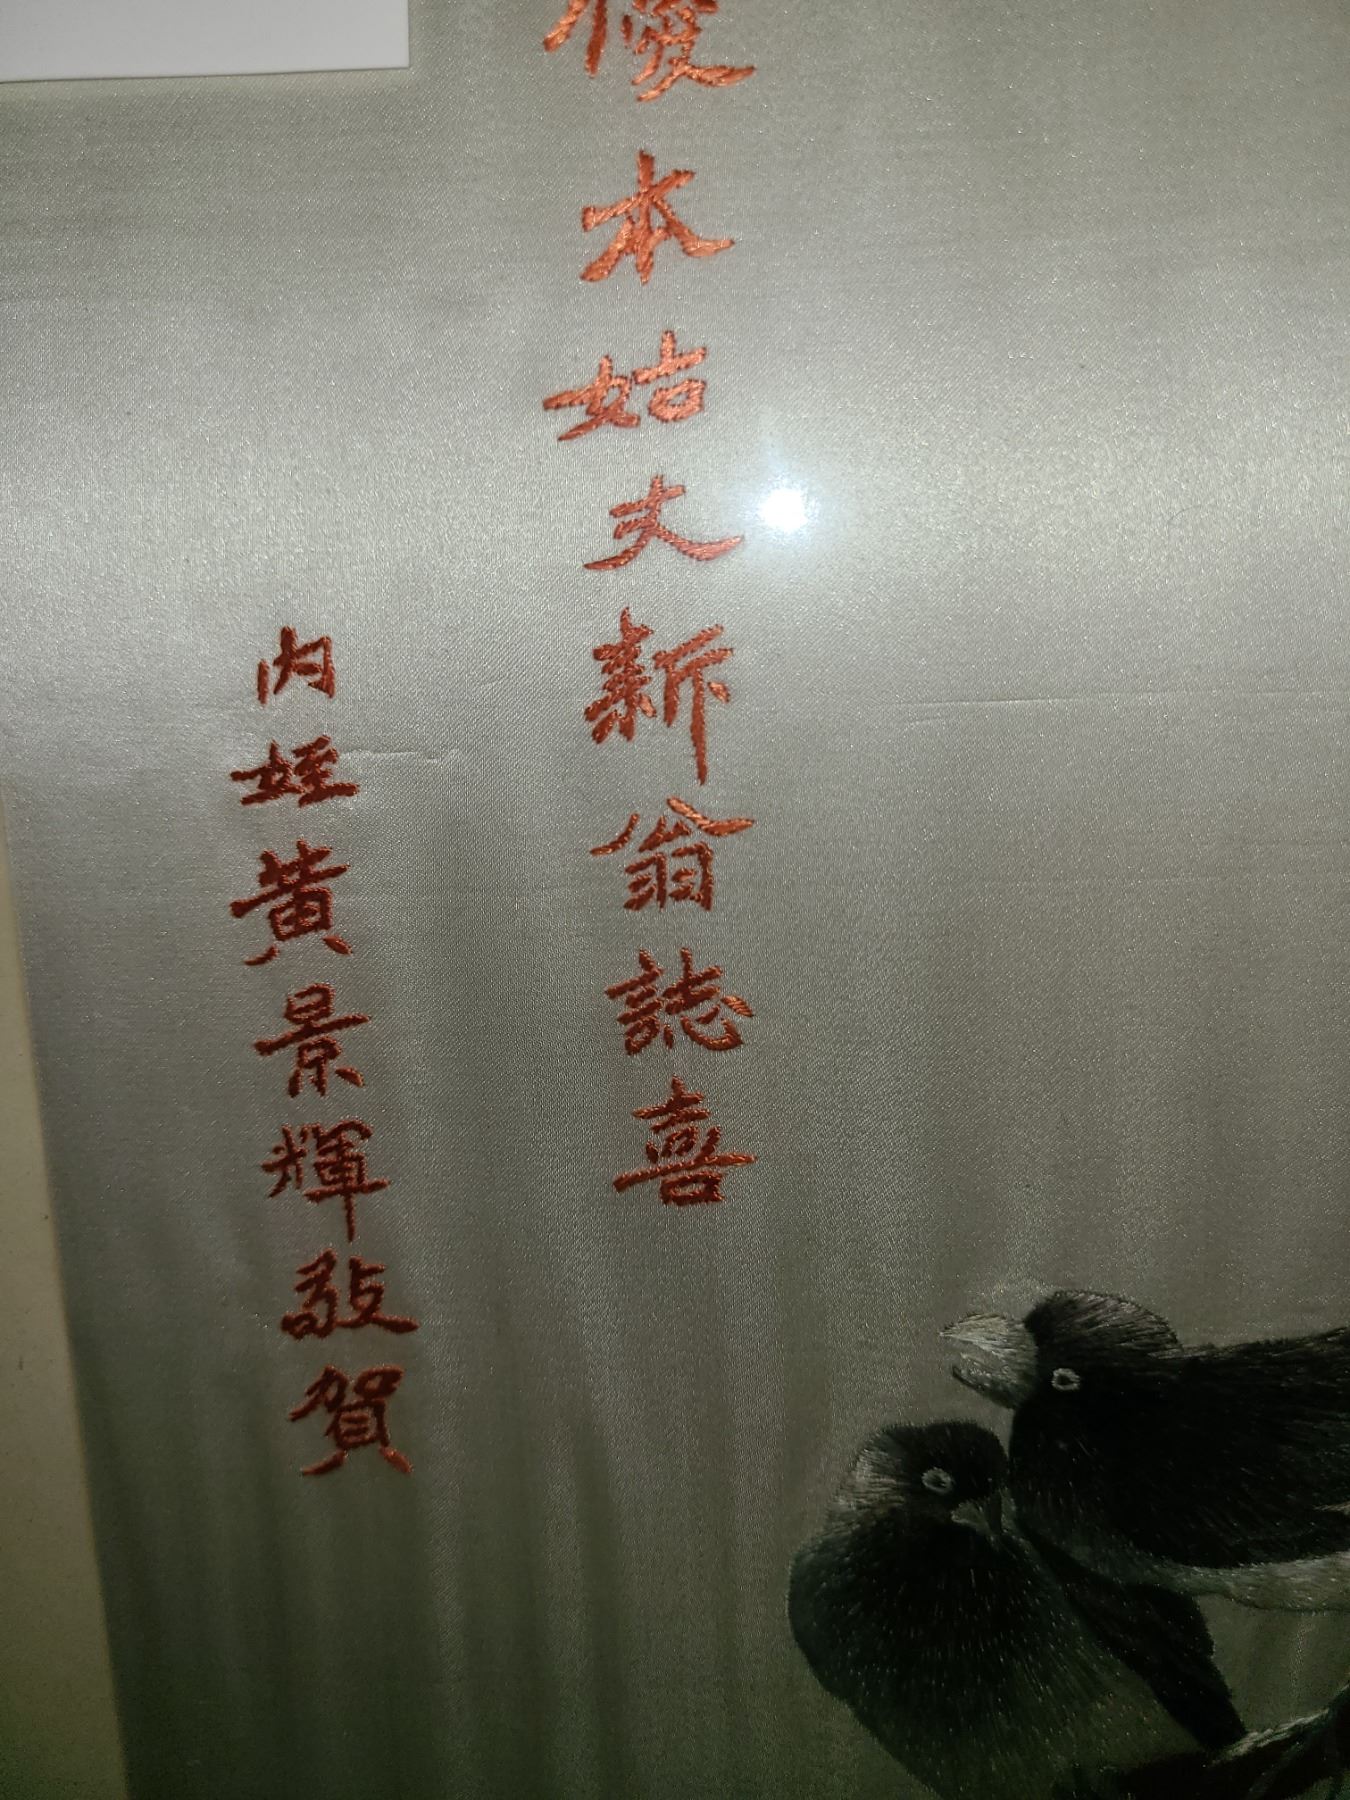 優本姑丈新翁誌喜
內姪黃景輝敬賀